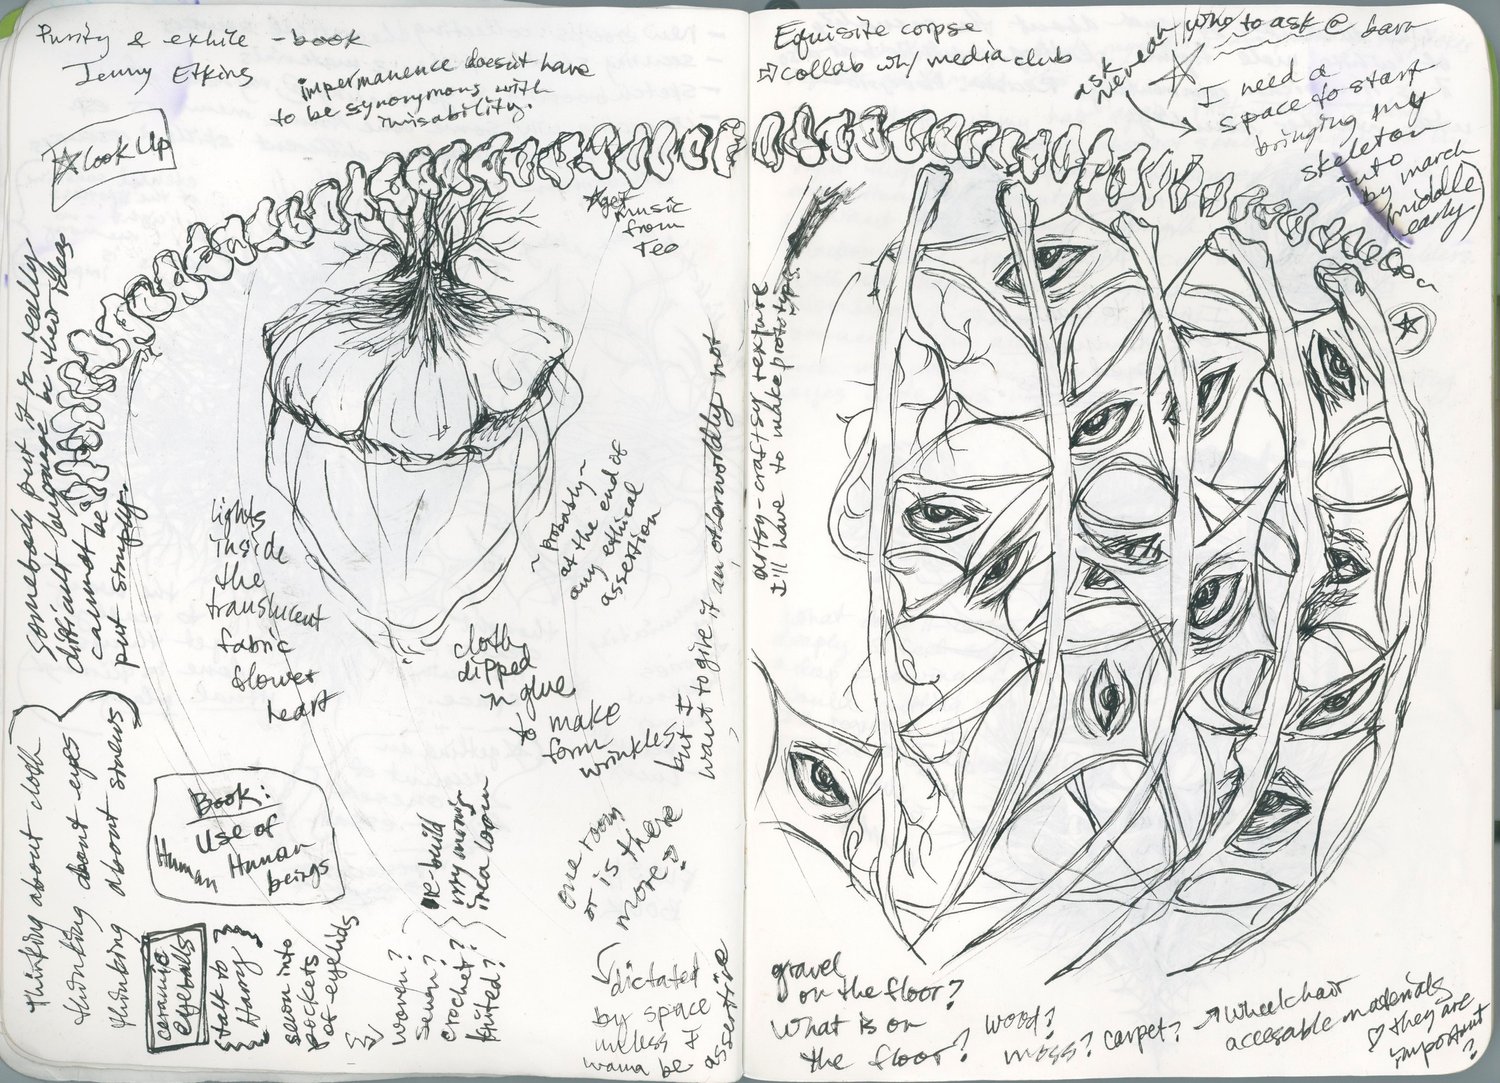 Purity & exhile - book
Jenny Etkins
impermanence doesn't have
to be synonymous with
invisability.
☆ Look Up
☆ get
music
from
Teo
Somebody put it so really
distinct because new ideas
cannot be
put simply.
lights
inside
the
translucent
fabric
flower
heart
~ probably ~
at the end of
any ethical
assertion
cloth
dipped
in glue
to make
form
wrinkles
but I
want to give it an otherworldly not
artsy-craftsy texture
I'll have to make prototypes.
thinking about cloth
thinking about eyes
thinking about sinews
Book:
Use of
Human Human
beings
ceramic
eyeballs
talk to
Harry
sewn into
pockets
of eyelids
woven?
sewn?
crochet?
knitted?
re-build
my mom's
irea loom
one room
or is there
more?
dictated
by space
unless I
wanna be
assertive
Equisite corpse
⇨ collab w/ media club
ask
Neveah / who to ask @ barn
☆ I need a
space to start
bringing my
skeleton
into
by march
(middle
early)
gravel
on the floor?
What is on
the floor?
wood?
moss? carpet?
→ wheelchair
accesable materials
♡ they are
important
?